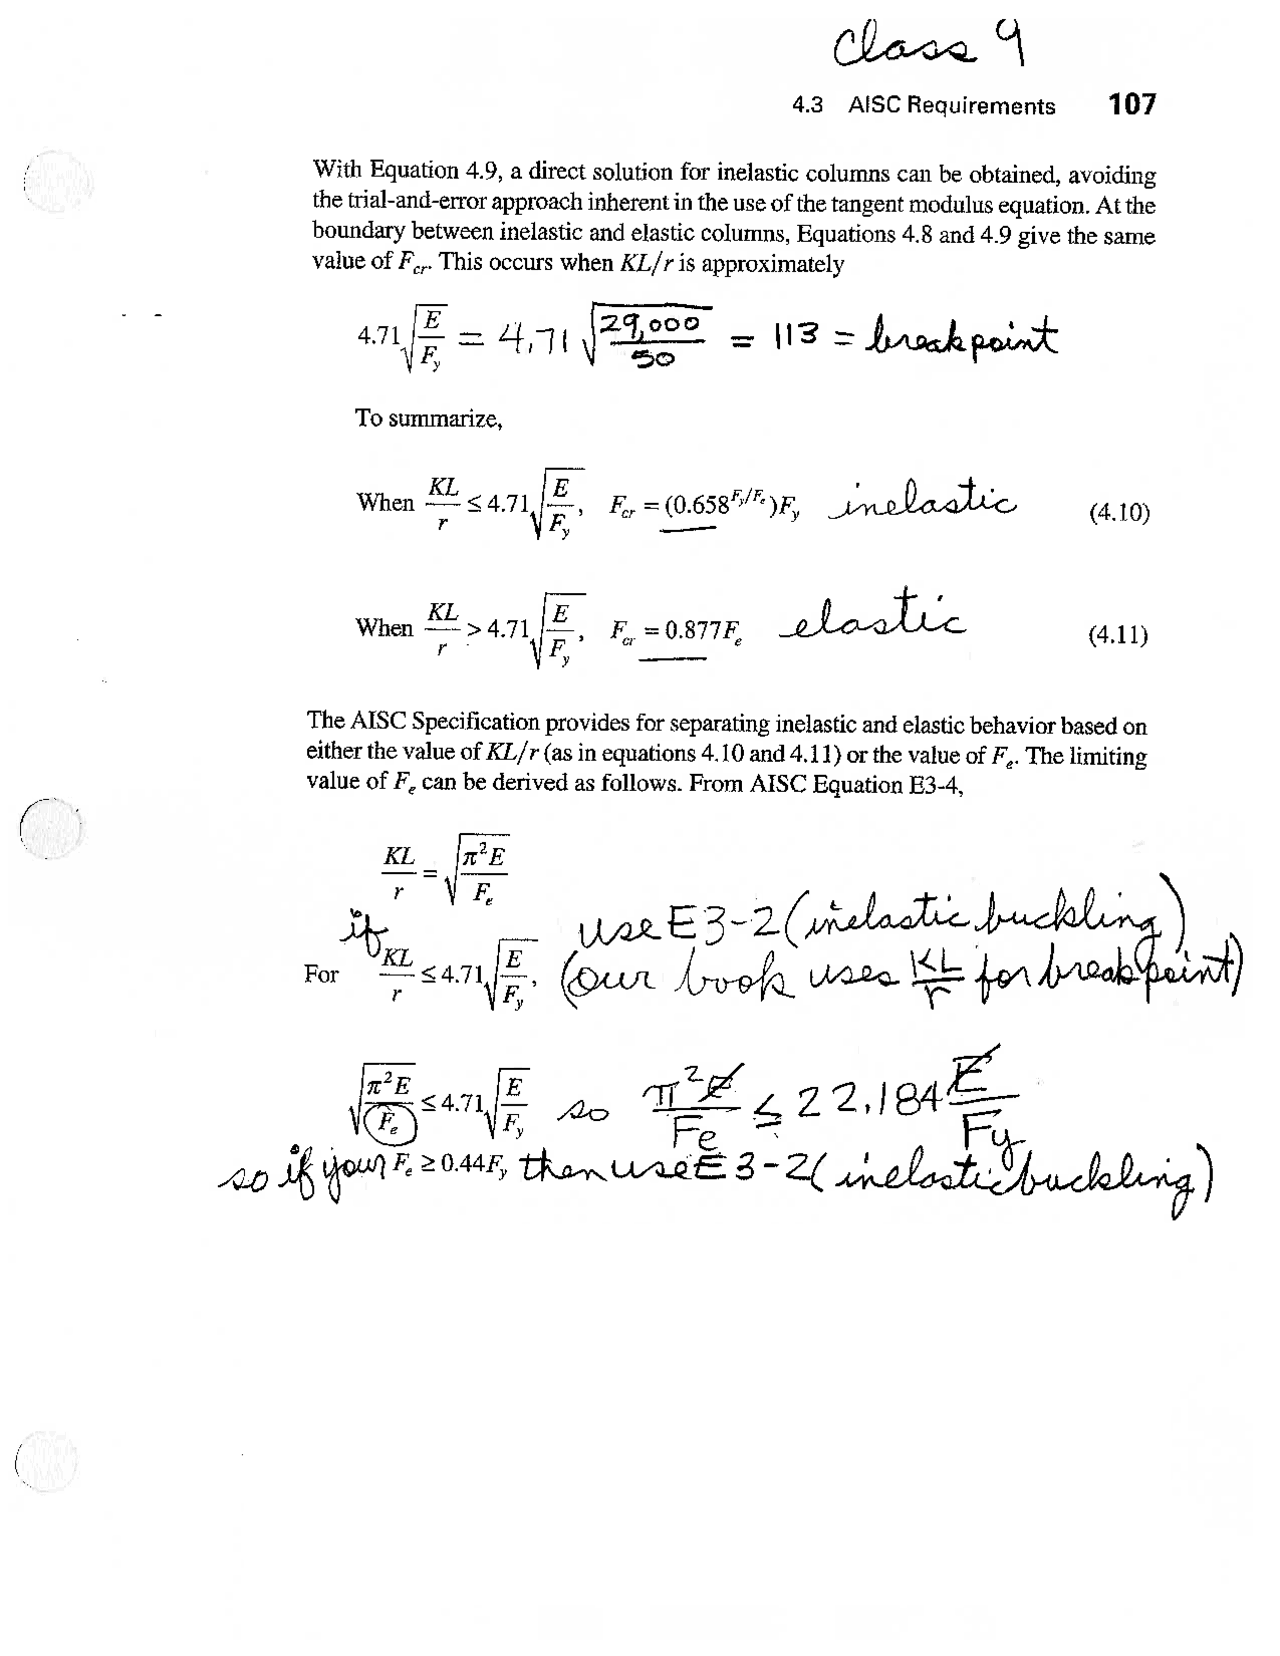 Class 9
4.3 AISC Requirements 107
With Equation 4.9, a direct solution for inelastic columns can be obtained, avoiding
the trial-and-error approach inherent in the use of the tangent modulus equation. At the
boundary between inelastic and elastic columns, Equations 4.8 and 4.9 give the same
value of F_cr. This occurs when KL/r is approximately
4.71√(E/F_y) = 4.71√(29,000/50) = 113 = breakpoint
To summarize,
When KL/r ≤ 4.71√(E/F_y), F_cr = (0.658^(F_y/F_e))F_y inelastic (4.10)
When KL/r > 4.71√(E/F_y), F_cr = 0.877F_e elastic (4.11)
The AISC Specification provides for separating inelastic and elastic behavior based on
either the value of KL/r (as in equations 4.10 and 4.11) or the value of F_e. The limiting
value of F_e can be derived as follows. From AISC Equation E3-4,
KL/r = √(π²E/F_e)
if use E3-2 (inelastic buckling)
For KL/r ≤ 4.71√(E/F_y), (our book uses KL/r for breakpoint)
√(π²E/F_e) ≤ 4.71√(E/F_y) so π²E/Fe ≤ 22.184 E/Fy
so if your F_e ≥ 0.44F_y then use E3-2 (inelastic buckling)